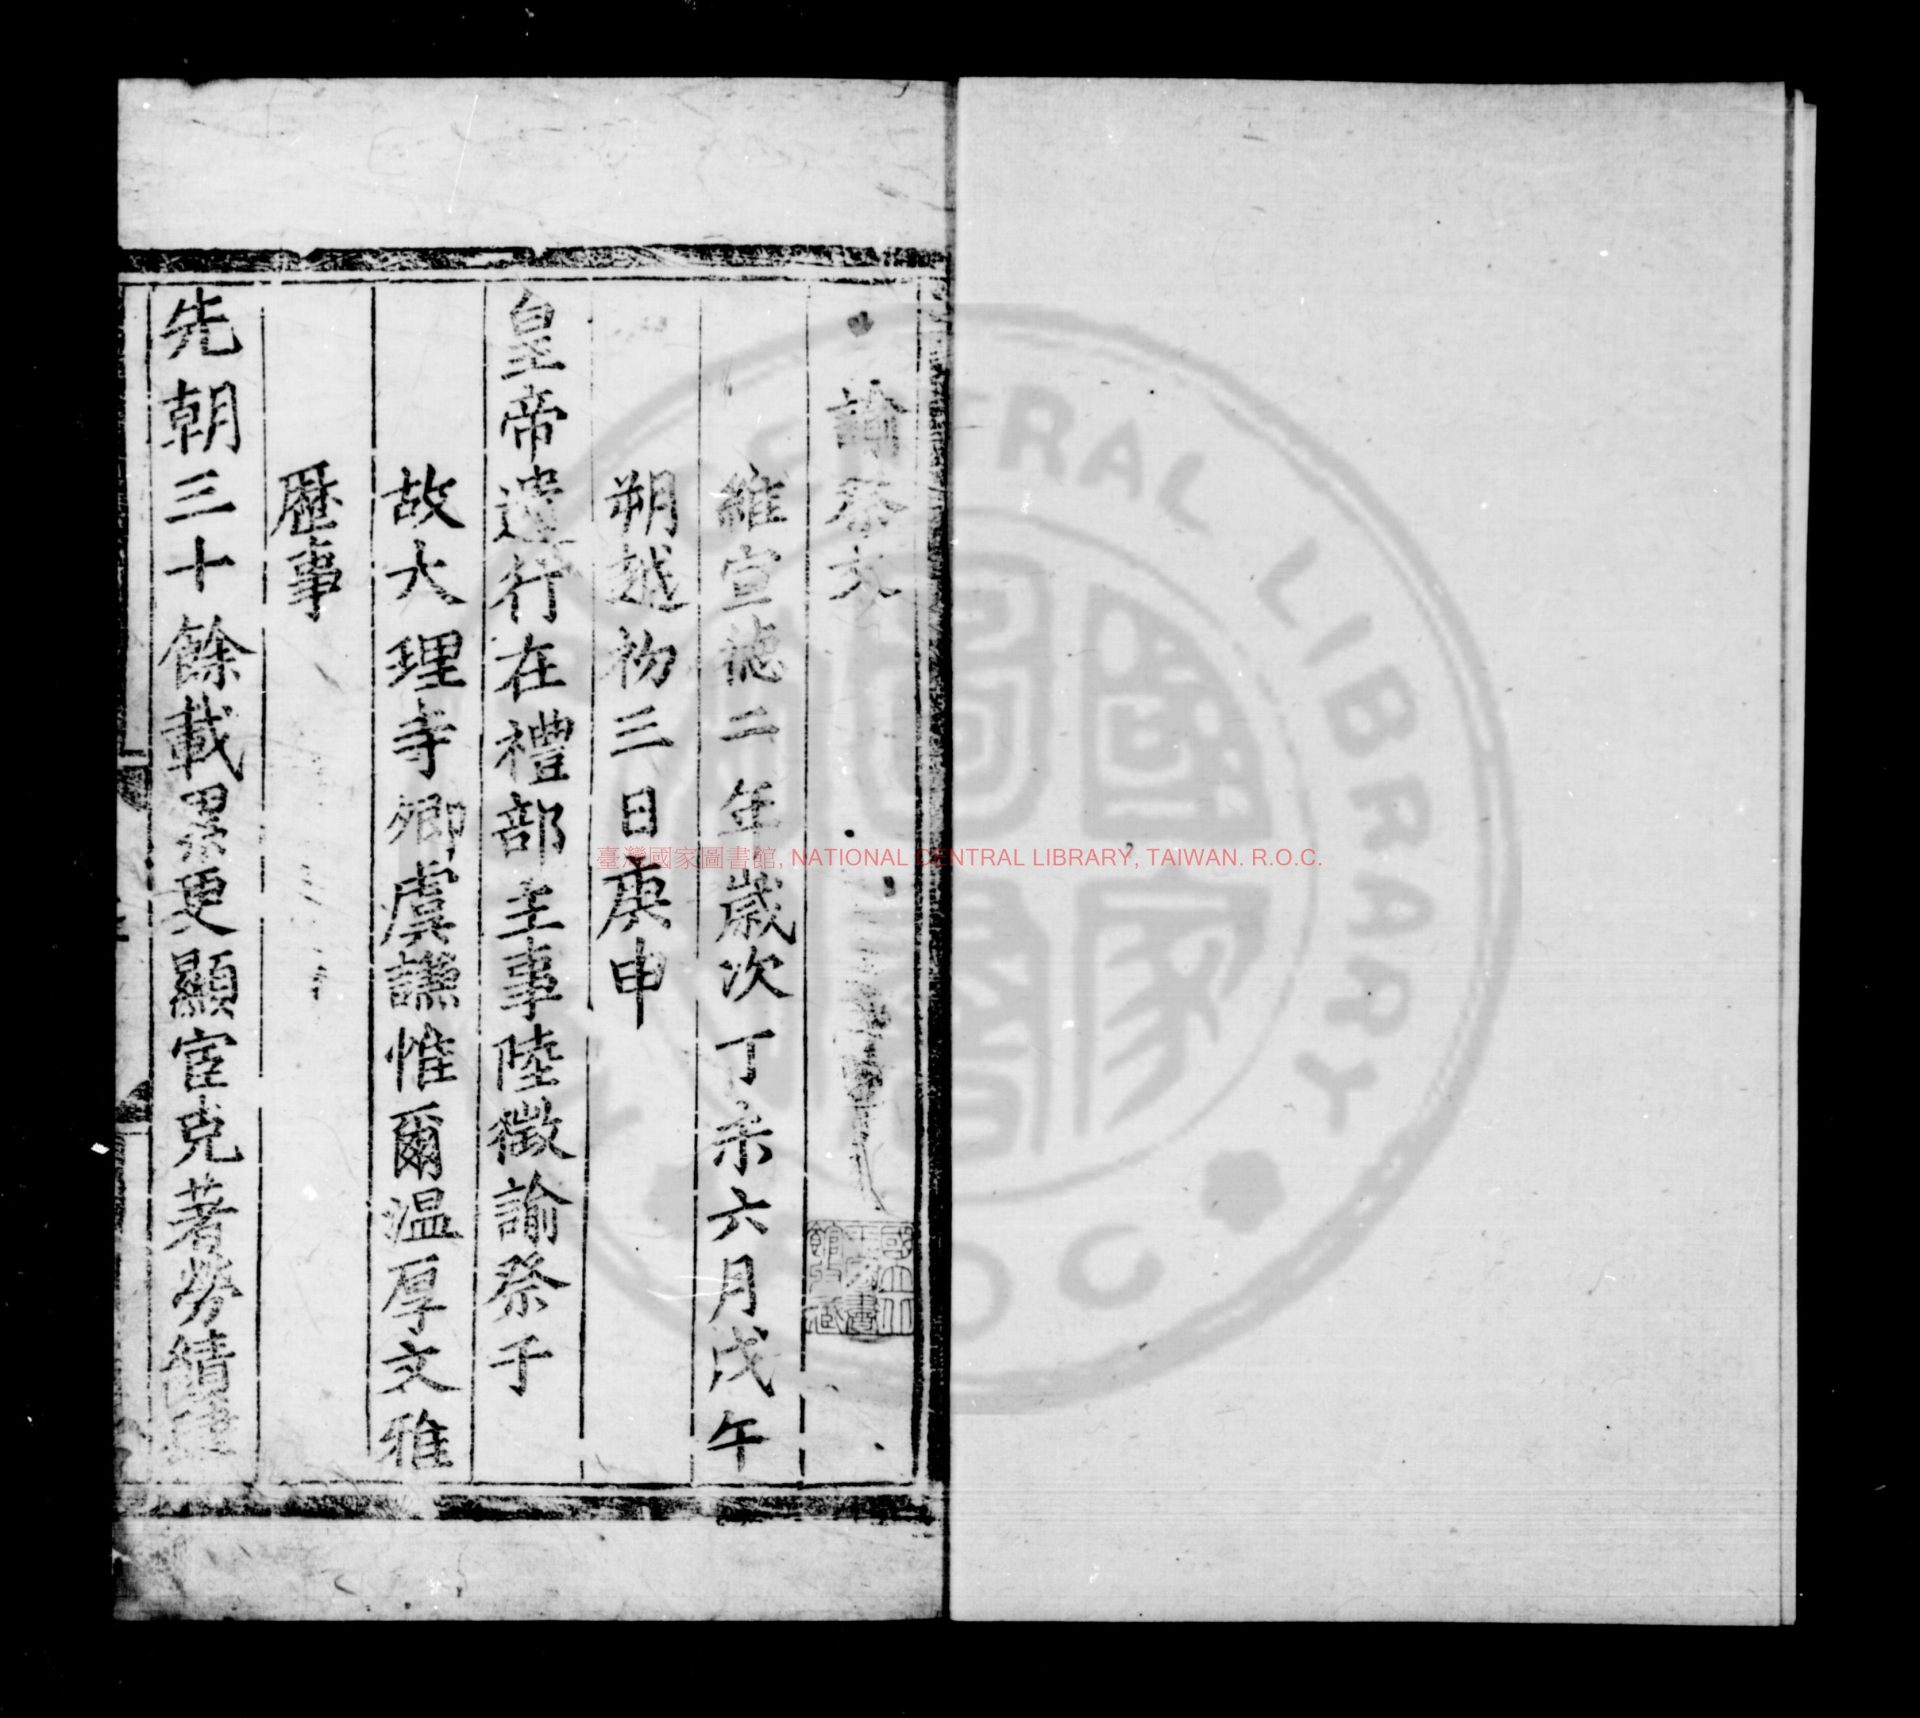 諭祭文
維宣德二年歲次丁未六月戊午
朔越初三日庚申
皇帝遣行在禮部主事陸徵諭祭于
故大理寺卿虞謙惟爾温厚文雅
歷事
先朝三十餘載累更顯宦克著勞績
臺灣國家圖書館, NATIONAL CENTRAL LIBRARY, TAIWAN. R.O.C.